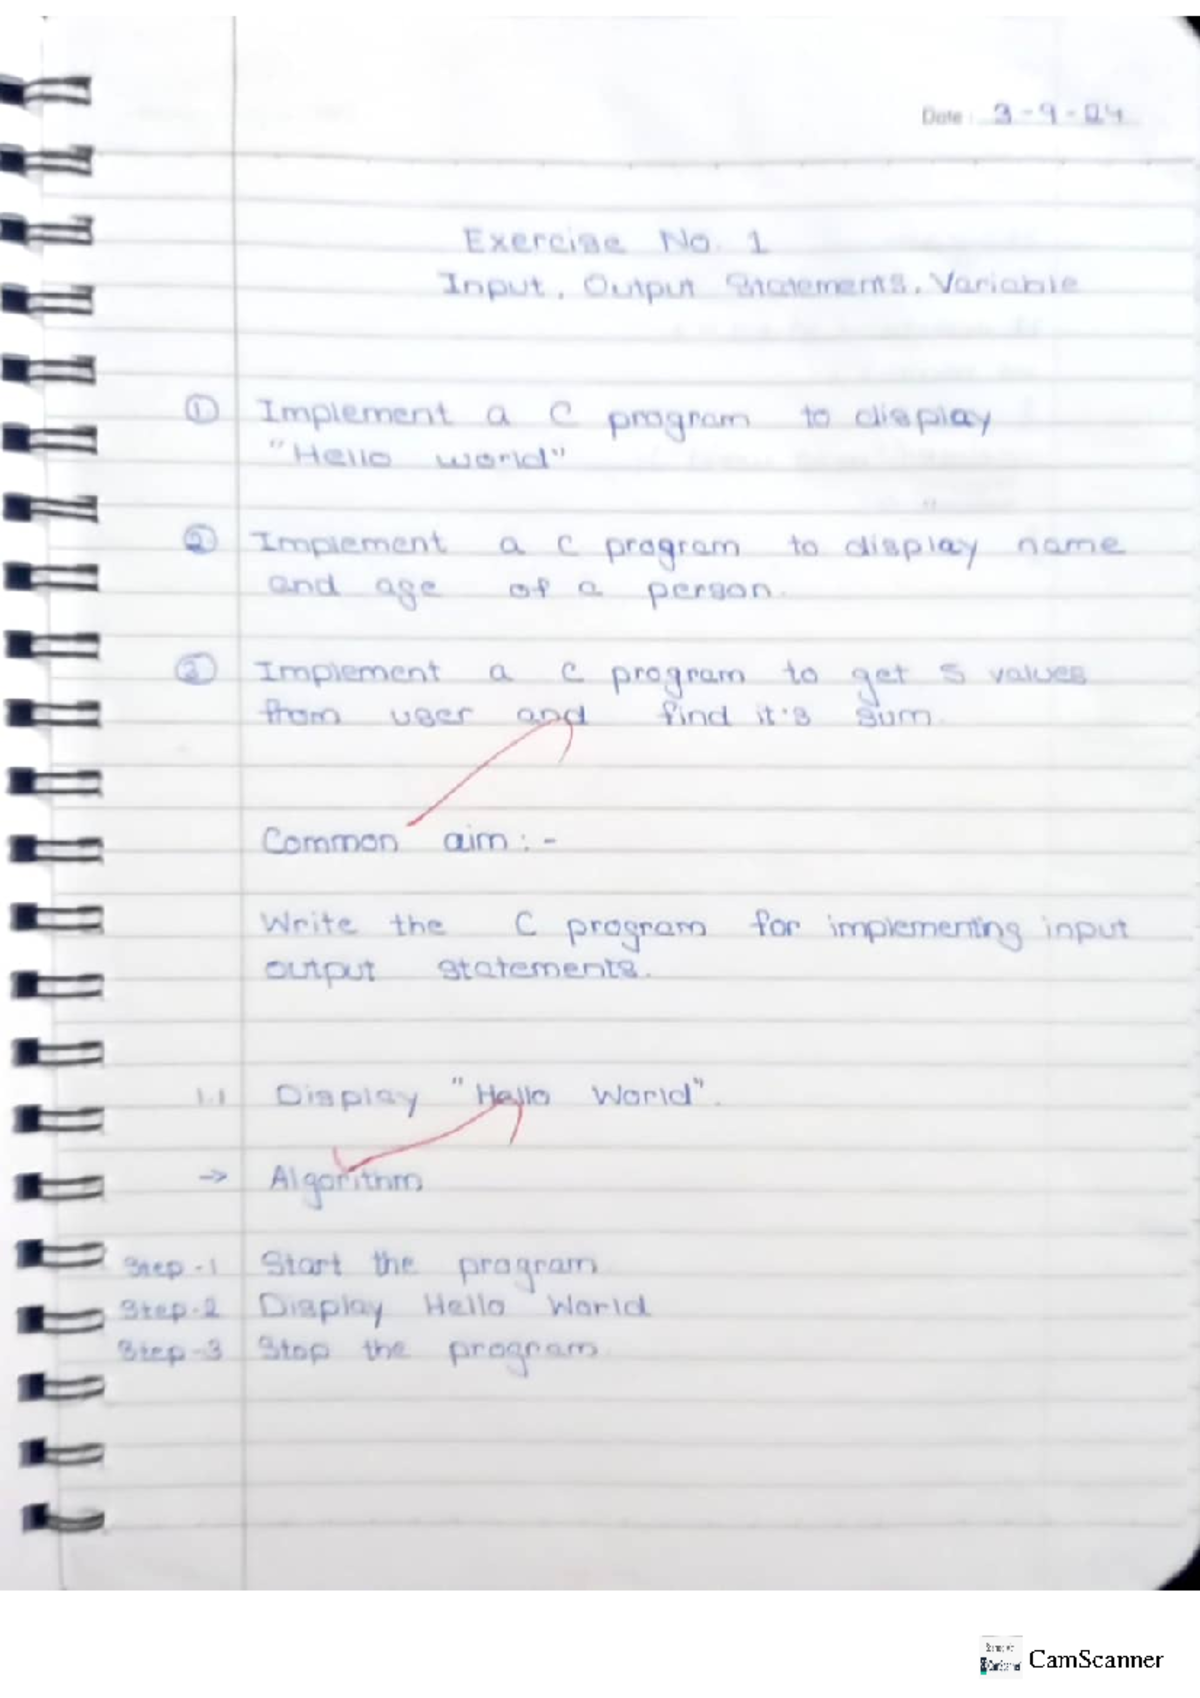 Date : 3-9-24
Exercise No. 1
Input, Output Statements, Variable
① Implement a C program to display
"Hello world"
② Implement a C program to display name
and age of a person.
③ Implement a C program to get 5 values
from user and find it's sum.
Common aim : -
Write the C program for implementing input
output statements.
1.1 Display "Hello World".
→ Algorithm
Step-1 Start the program
Step-2 Display Hello World
Step-3 Stop the program.
CamScanner